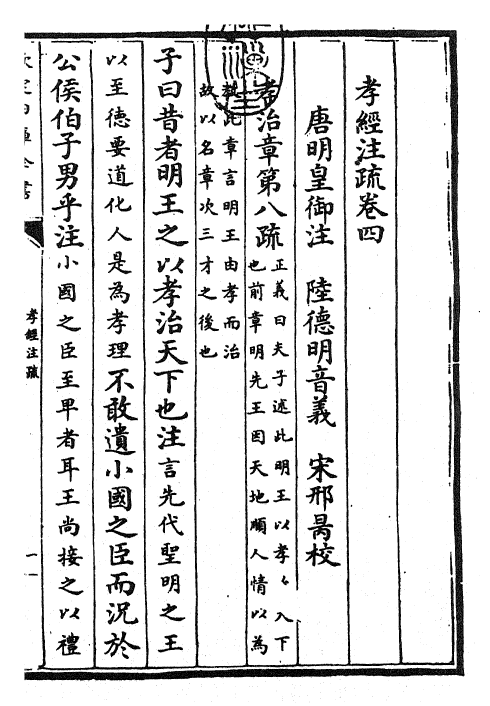 孝經注疏卷四
唐明皇御注 陸德明音義 宋邢昺校
孝治章第八疏
正義曰夫子述此明王以孝下
也前章明先王因天地順人情以為
教此章言明王由孝而治
故以名章次三才之後也
子曰昔者明王之以孝治天下也注言先代聖明之王
以至德要道化人是為孝理不敢遺小國之臣而況於
公侯伯子男乎注小國之臣至卑者耳王尚接之以禮
孝經注疏
一